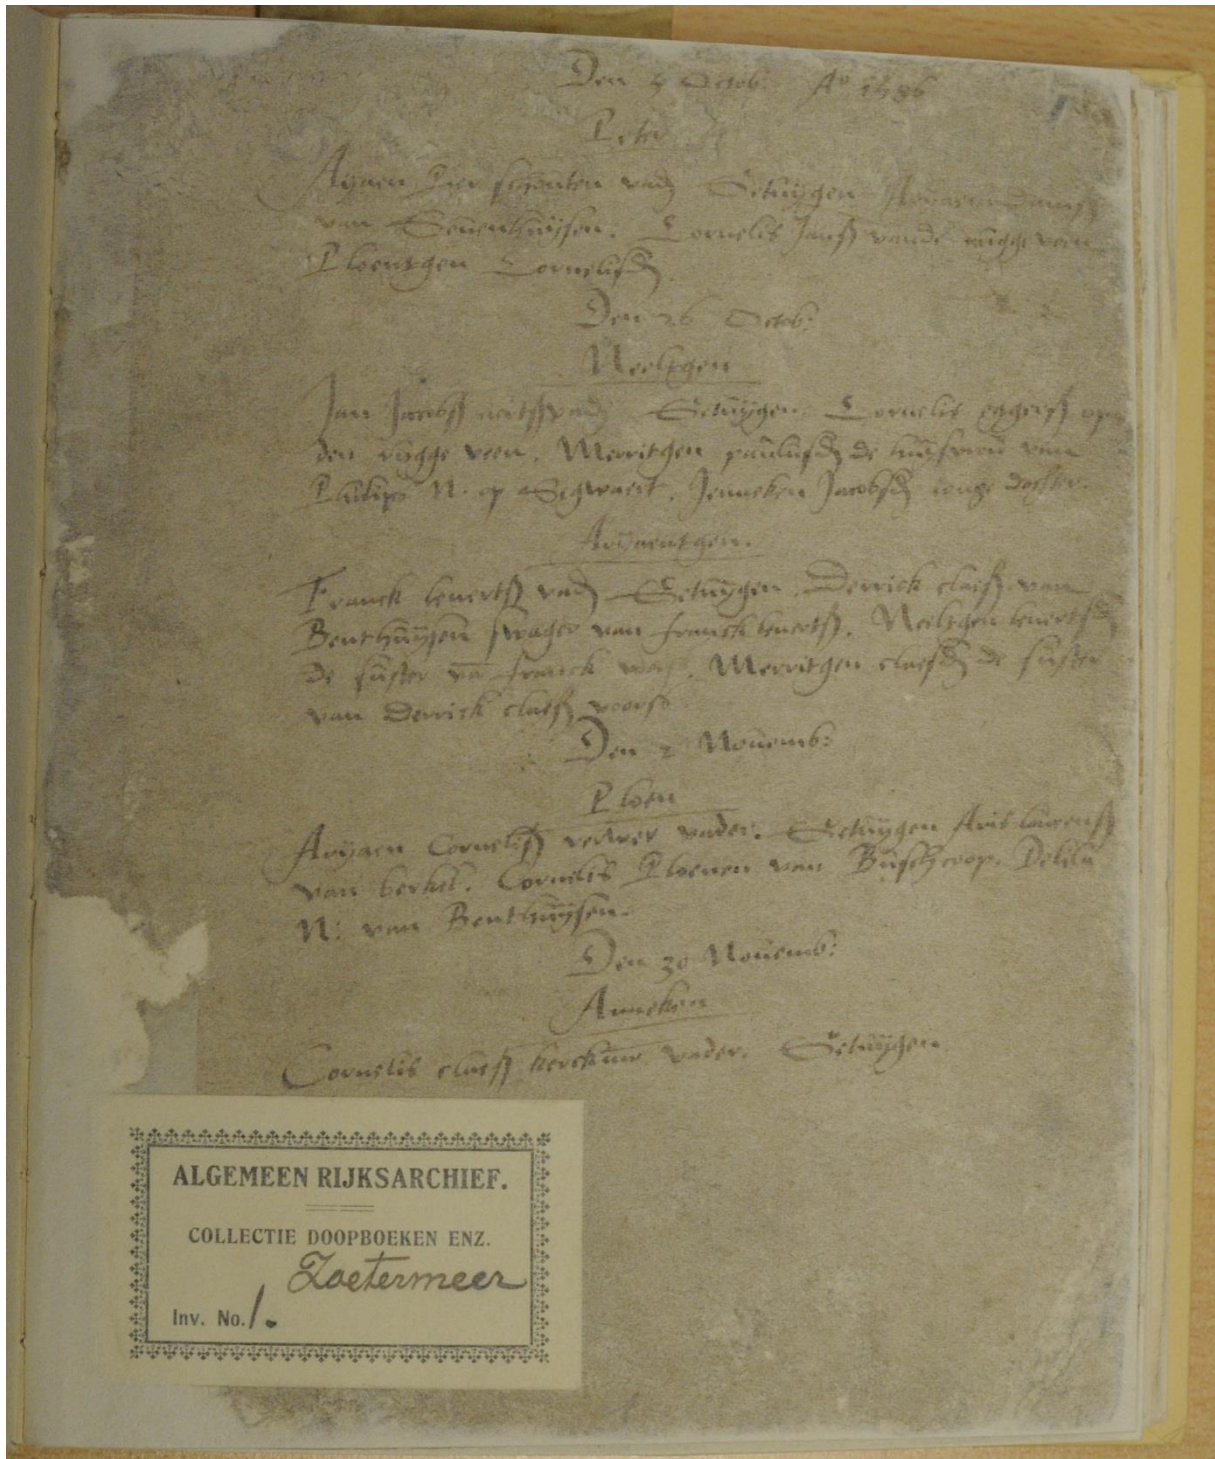 Den 5 Octob. A° 1586
Peter
Aryaen schouten vad Getuygen
van Seuenhuysen. Cornelis Jansz vande rugge veen
Ploentgen Cornelisd
Den 26 Octob:
Neeltgen
Jan Jacobsz vad Getuygen Cornelis eggersz op
den rugge veen. Merritgen paulusd de huysvrou van
Philips N. op Segwaert. Jenneken Jacobsd ionge dochter.
Aryaentgen.
Franck leuertsz vad Getuygen. Derrick claesz van
Benthuysen swager van franck leuertsz. Neeltgen leuertsd
de suster va franck. Merritgen claesd de suster
van Derrick claesz voors
Den 2 Nouemb:
Ploen
Aryaen Cornelisz verwer vader. Getuygen Aris laurensz
van berkel. Cornelis Ploenen van Buschcoop. Delila
N: van Benthuysen.
Den 30 Nouemb:
Anneken
Cornelis claesz kerckmr vader. Getuygen
ALGEMEEN RIJKSARCHIEF.
COLLECTIE DOOPBOEKEN ENZ.
Zoetermeer
Inv. No. 1.